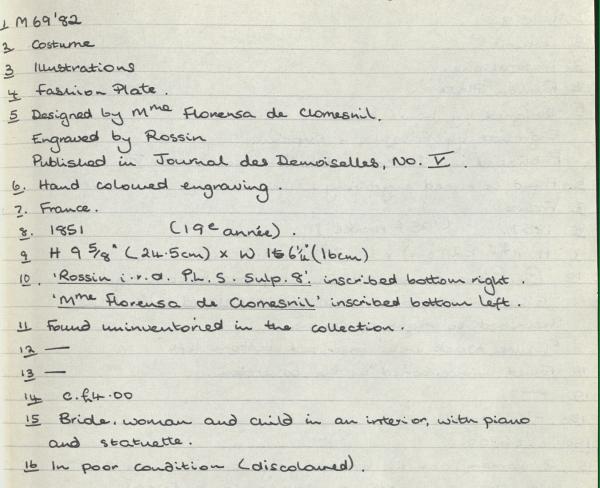 1 M69'82
2 Costume
3 Illustrations
4 Fashion Plate.
5 Designed by Mme Florensa de Clomesnil.
Engraved by Rossin
Published in Journal des Demoiselles, No. V.
6. Hand coloured engraving.
7. France.
8. 1851 (19e année).
9 H 9 5/8" (24.5cm) x W 6¼" (16cm)
10. 'Rossin i.r.d. P.L.S. Sulp. 8'. inscribed bottom right.
'Mme Florensa de Clomesnil' inscribed bottom left.
11 Found uninventoried in the collection.
12 —
13 —
14 c.£4.00
15 Bride, woman and child in an interior, with piano
and statuette.
16 In poor condition (discoloured).